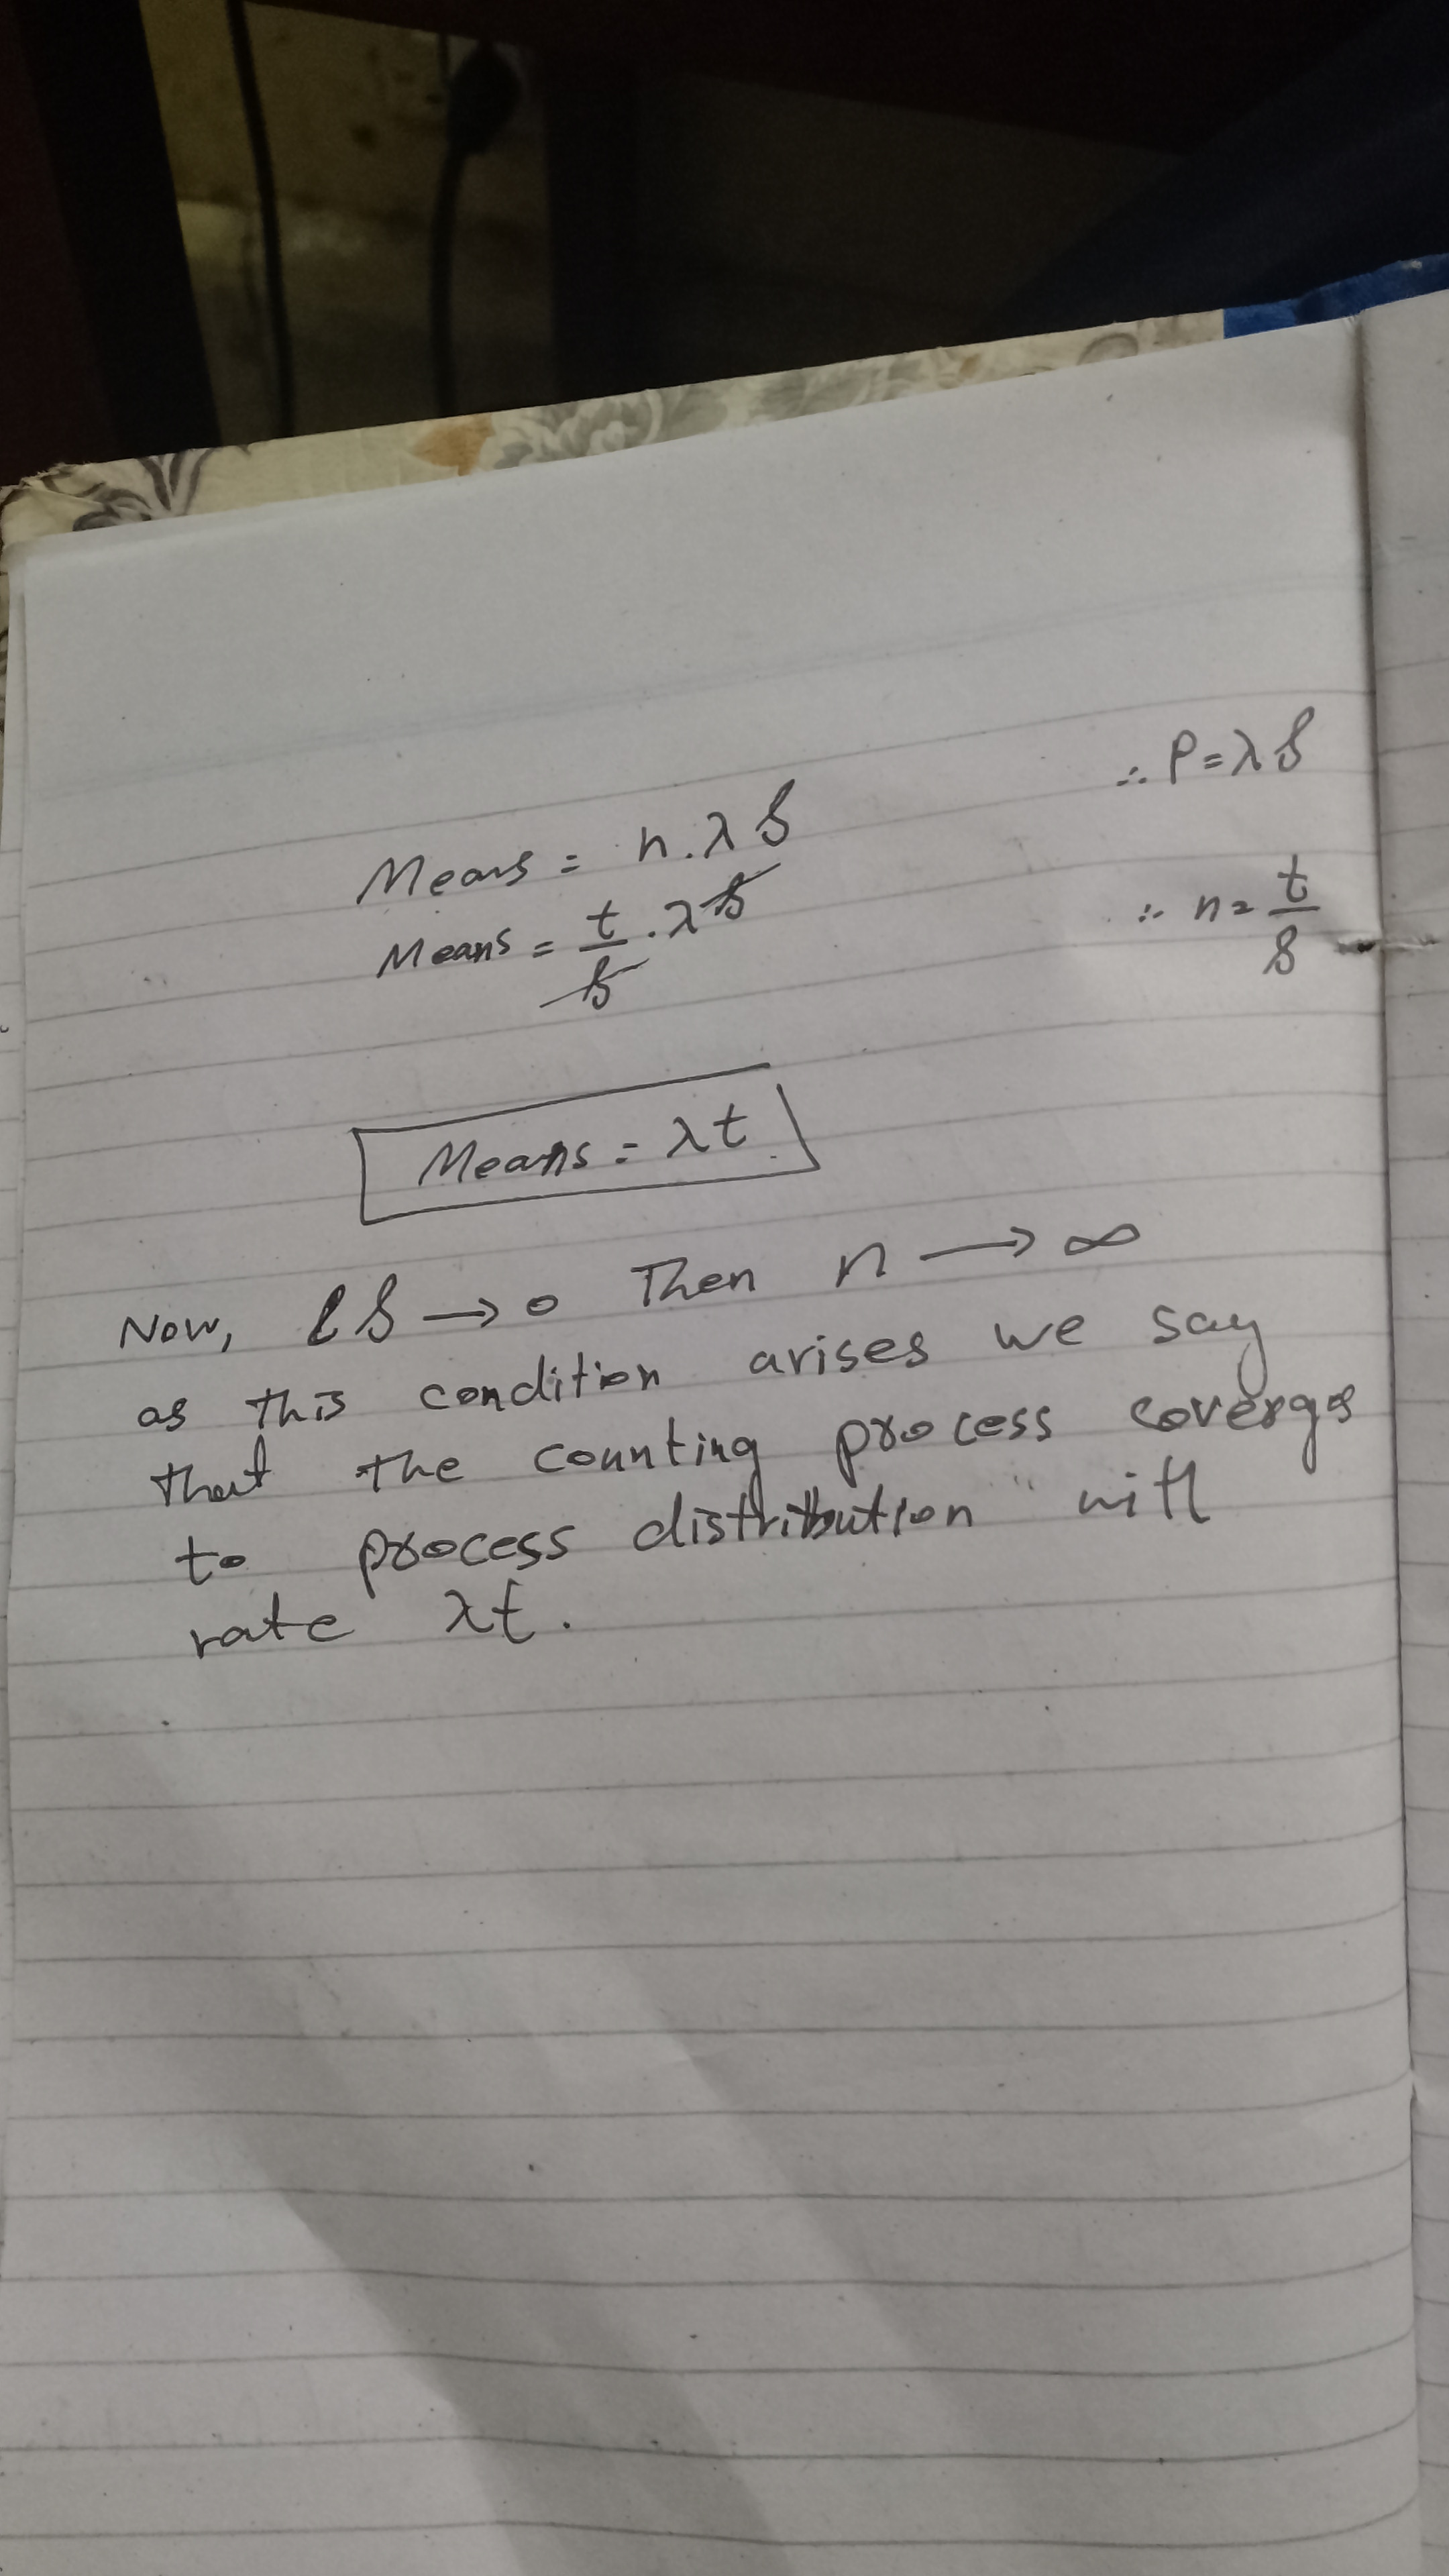 ∴ P = λδ
Means = n.λδ
Means = t/δ . λδ
∴ n = t/δ
Means = λt
Now, δ → 0 Then n → ∞
as this condition arises we say
that the counting process coverges
to process distribution with
rate λt.